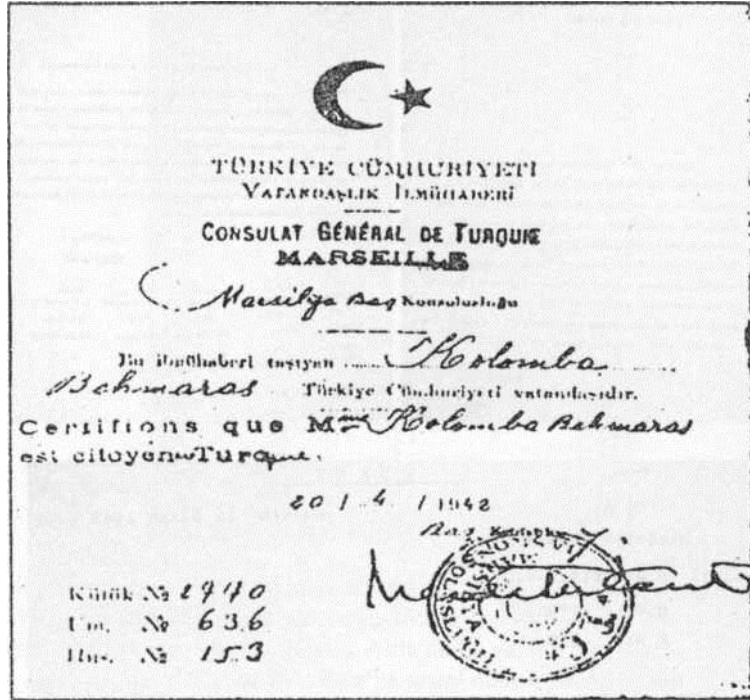 TÜRKİYE CÜMHURİYETİ
VATANDAŞLIK İLMÜHABERİ
CONSULAT GÉNÉRAL DE TURQUIE
MARSEILLE
Marsilya Baş Konsolosluğu
Bu ilmühaberi taşıyan Kolomba
Behmaras Türkiye Cümhuriyeti vatandaşıdır.
Certifions que Mme Kolomba Behmaras
est citoyenne Turque.
20 / 4 / 1942
Baş Konsolos
Kütük №
Um. № 636
Hus. № 153